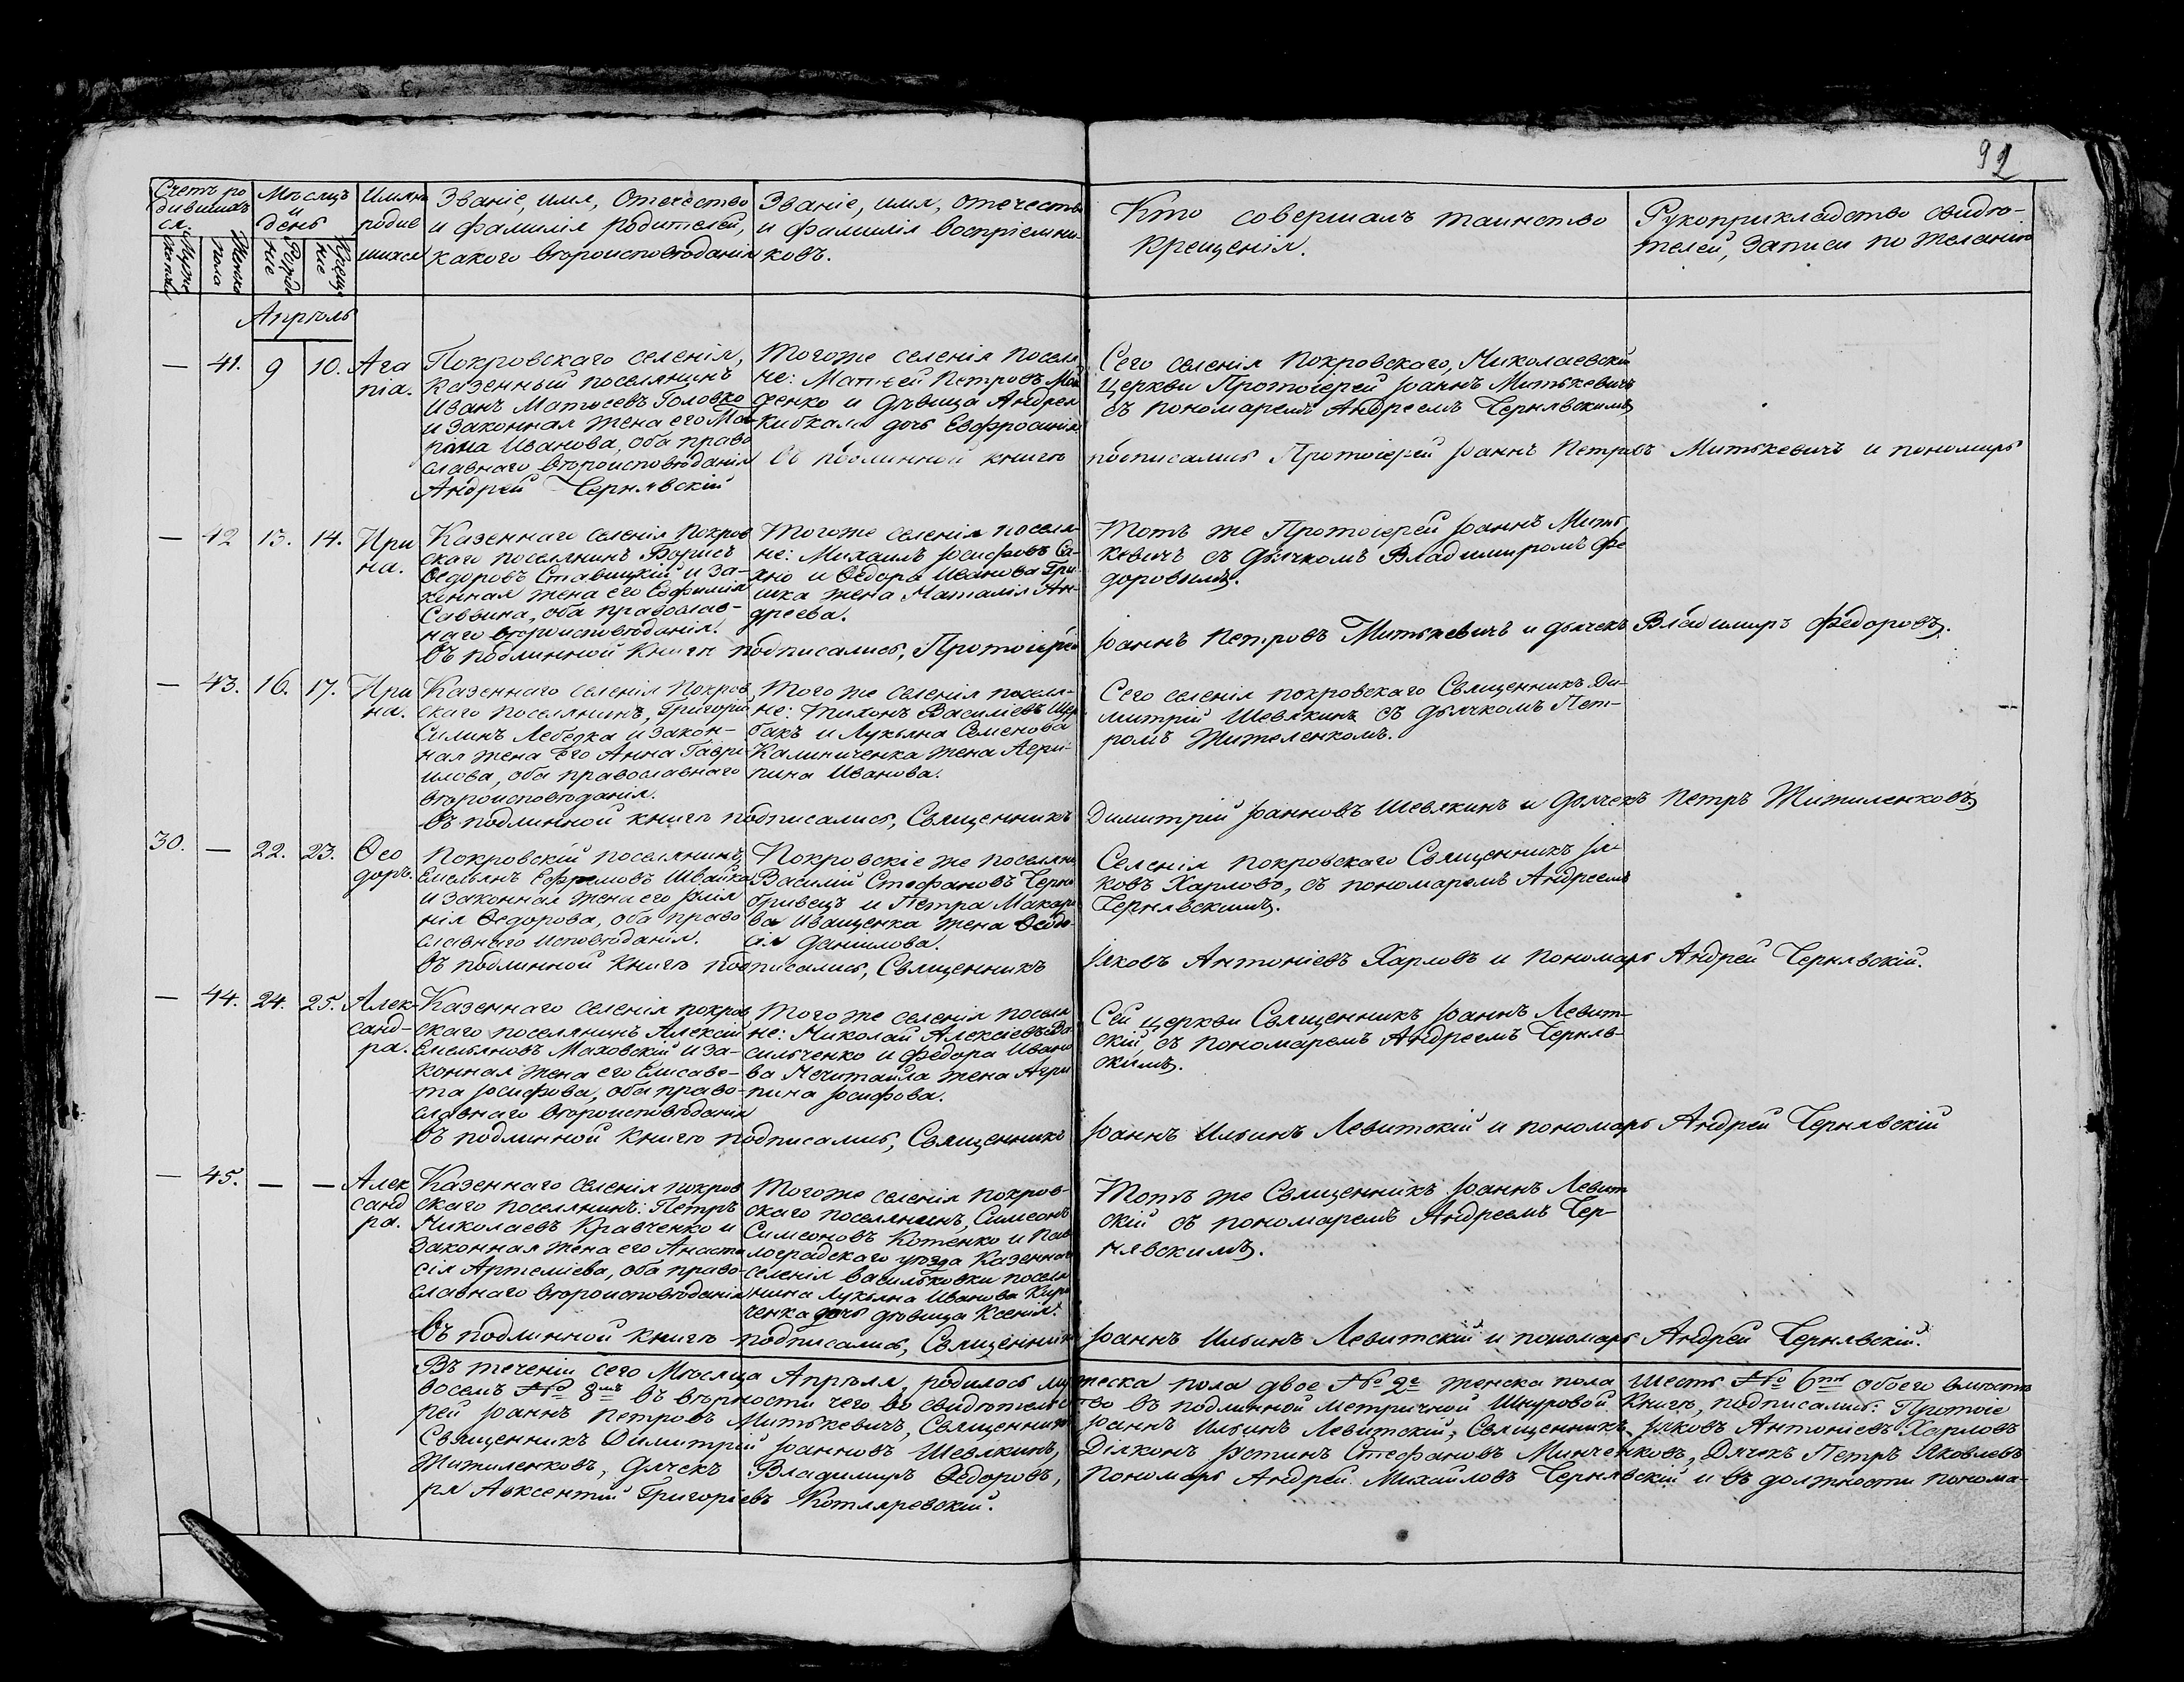 92
Счетъ ро
дившихъ
ся.
Мѣсяцъ
и
день
Имяна
родив
шихся
Званіе, имя, Отечество
и фамилія родителей,
какого вѣроисповѣданія
Званіе, имя, отечество
и фамилія воспріемни-
ковъ.
Кто совершалъ таинство
крещенія.
Рукоприкладство свидѣ-
телей, записи по желанію
Мужска
пола
Женска
пола
Рожде
ніе
Креще
ніе
Апрѣль
— 41. 9 10.
Ага
піа.
Покровскаго селенія,
Казенный поселянинъ
Иванъ Матѳеевъ Головко
и законная жена его Ма-
рина Иванова, оба право
славнаго вѣроисповѣданія
Тогоже селенія поселя
не: Матѳей Петровъ Мои
сенко и дѣвица Андрея
Кибкала дочь Евфросинія.
Сего селенія Покровскаго, Николаевской
Церкви Протоіерей Іоаннъ Митькевичъ
съ пономаремъ Андреемъ Чернявскимъ
Въ подлинной книгѣ подписались Протоіерей Іоаннъ Петровъ Митькевичъ и пономарь
Андрей Чернявскій
— 42 13. 14.
Ири
на.
Казеннаго селенія Покров
скаго поселянинъ Борисъ
Ѳедоровъ Ставицкій и за-
конная жена его Евфимія
Саввина, оба православ-
наго вѣроисповѣданія.
Тогоже селенія поселя-
не: Михаилъ Іосифовъ Са-
хно и Ѳедора Иванова Гри-
шка жена Наталія Ан-
дреева.
Тотъ же Протоіерей Іоаннъ Мить
кевичъ съ дьячкомъ Владимиромъ Фе
доровымъ.
Въ подлинной книгѣ подписались, Протоіерей Іоаннъ Петровъ Митькевичъ и дьячекъ Владимиръ Федоровъ.
— 43. 16. 17.
Ири
на.
Казеннаго селенія Покров
скаго поселянинъ, Григорій
Силинъ Лебедка и закон-
ная жена его Анна Гаври-
илова, оба православнаго
вѣроисповѣданія.
Того же селенія поселя-
не: Тихонъ Василіевъ Щер
бакъ и Лукьяна Семенова
Калиниченка жена Агри-
пина Иванова.
Сего селенія покровскаго Священникъ Ди-
митрій Шевякинъ съ дьячкомъ Пет-
ромъ Жителенкомъ.
Въ подлинной книгѣ подписались, Священникъ Димитрій Іоанновъ Шевякинъ и дьячекъ Петръ Житиленковъ
30. — 22. 23.
Ѳео
доръ.
Покровскій поселянинъ
Емельянъ Ефремовъ Швайка
и законная жена его Іулія
нія Ѳедорова, оба право
славнаго исповѣданія.
Покровскіе же поселяне
Василій Стефановъ Черно
бривецъ и Петра Макаро
ва Иващенка жена Ѳеодо-
сія Данилова.
Селенія покровскаго Священникъ Іа-
ковъ Харловъ, съ пономаремъ Андреемъ
Чернявскимъ.
Въ подлинной книгѣ подписались, Священникъ Іаковъ Антоніевъ Харловъ и пономарь Андрей Чернявскій.
— 44. 24. 25.
Алек-
санд-
ра.
Казеннаго селенія покров
скаго поселянинъ Алексій
Емельяновъ Маховскій и за-
конная жена его Елисаве-
та Іосифова, оба право-
славнаго вѣроисповѣданія
Того же селенія поселя
не: Николай Алексіевъ Ва-
сильченко и Федора Ивано
ва Нечитайла жена Агри
пина Іосифова.
Сей церкви Священникъ Іоаннъ Левит-
скій съ пономаремъ Андреемъ Черняв-
скимъ.
Въ подлинной книгѣ подписались, Священникъ Іоаннъ Ильинъ Левитскій и пономарь Андрей Чернявскій
— 45. — —
Алек
санд
ра.
Казеннаго селенія покров
скаго поселянинъ: Петръ
Николаевъ Кравченко и
законная жена его Анаста
сія Артеміева, оба право-
славнаго вѣроисповѣданія
Тогоже селенія покров-
скаго поселянинъ, Симеонъ
Симеоновъ Котенко и Пав
лоградскаго уѣзда Казеннаго
селенія Васильковки поселя
нина Лукьяна Иванова Кири
ченка дочь дѣвица Ксенія.
Тотъ же Священникъ Іоаннъ Левит
скій съ пономаремъ Андреемъ Чер-
нявскимъ.
Въ подлинной книгѣ подписались, Священникъ Іоаннъ Ильинъ Левитскій и пономарь Андрей Чернявскій.
Въ теченіи сего Мѣсяца Апрѣля, родилось мужеска пола двое № 2е женска пола шесть № 6ть обоего вмѣстѣ
восемь № 8мь въ вѣрности чего во свидѣтельство въ подлинной метричной Шнуровой Книгѣ, подписались: Протоіе
рей Іоаннъ Петровъ Митькевичъ, Священникъ Іоаннъ Ильинъ Левитскій, Священникъ Іаковъ Антоніевъ Харловъ
Священникъ Димитрій Іоанновъ Шевякинъ, Діяконъ Іустинъ Стефановъ Минченковъ, Дячекъ Петръ Яковлевъ
Житиленковъ, Дячекъ Владимиръ Ѳедоровъ, Пономарь Андрей Михайловъ Чернявскій и въ должности понома-
ря Авксентій Григоріевъ Котляревскій.